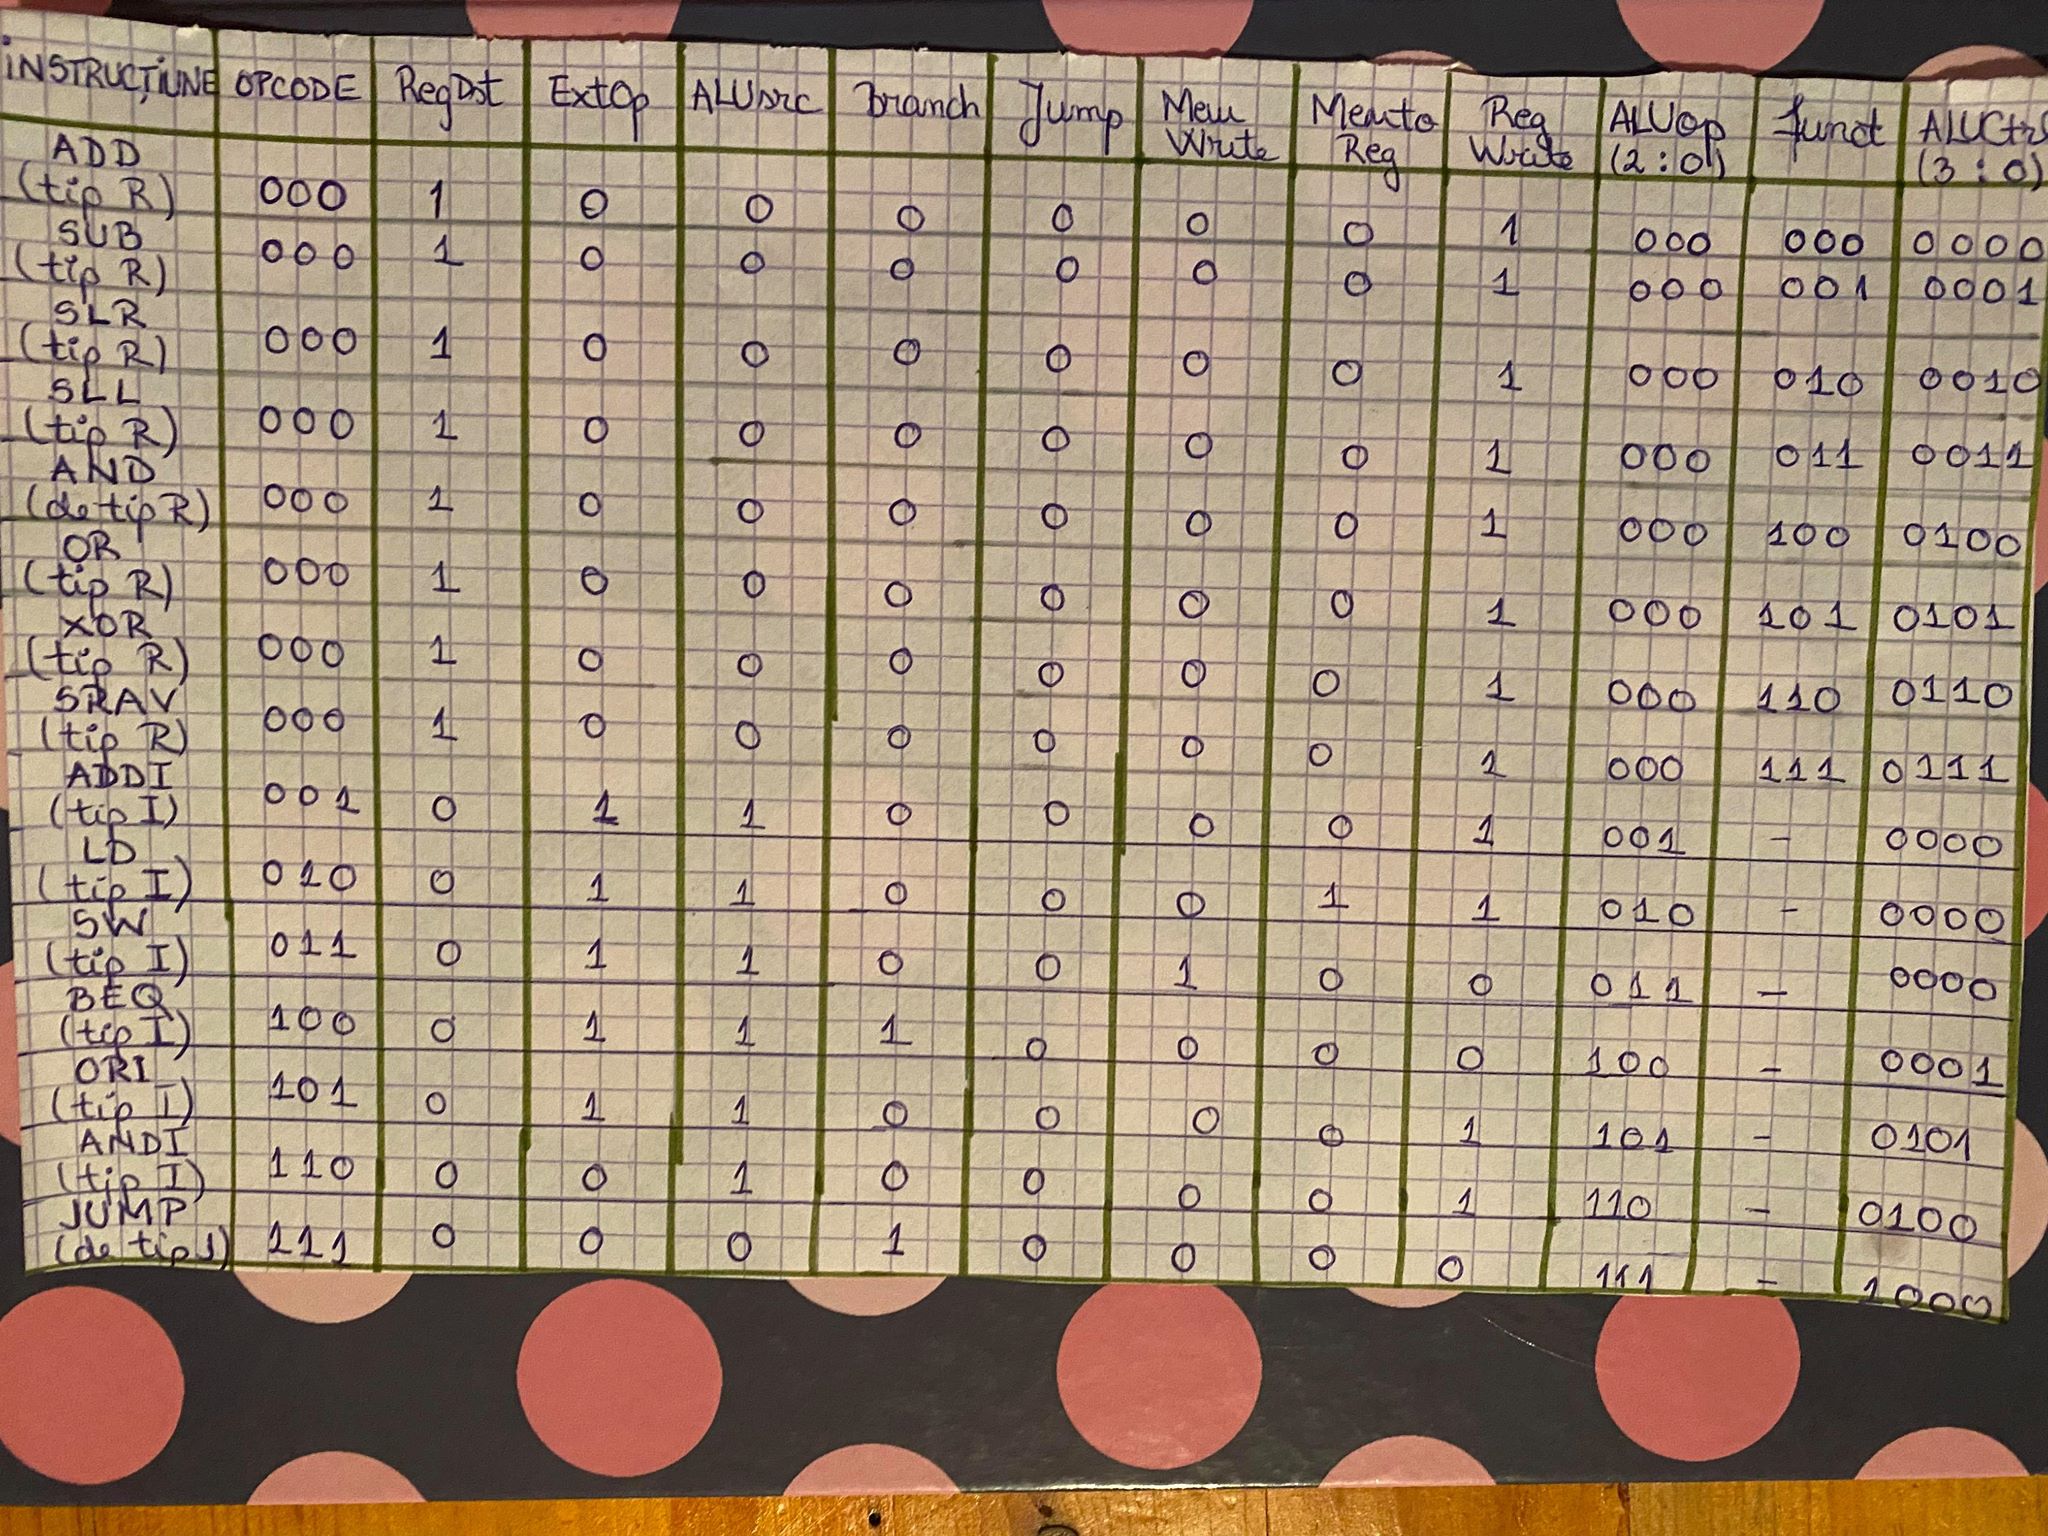 INSTRUCȚIUNE OPCODE RegDst ExtOp ALUsrc branch Jump Mem Write Memto Reg Reg Write ALUop (2:0) funct ALUCtrl (3:0)
ADD (tip R) 000 1 0 0 0 0 0 0 1 000 000 0000
SUB (tip R) 000 1 0 0 0 0 0 0 1 000 001 0001
SLR (tip R) 000 1 0 0 0 0 0 0 1 000 010 0010
SLL (tip R) 000 1 0 0 0 0 0 0 1 000 011 0011
AND (de tip R) 000 1 0 0 0 0 0 0 1 000 100 0100
OR (tip R) 000 1 0 0 0 0 0 0 1 000 101 0101
XOR (tip R) 000 1 0 0 0 0 0 0 1 000 110 0110
SRAV (tip R) 000 1 0 0 0 0 0 0 1 000 111 0111
ADDI (tip I) 001 0 1 1 0 0 0 0 1 001 - 0000
LD (tip I) 010 0 1 1 0 0 0 1 1 010 - 0000
SW (tip I) 011 0 1 1 0 0 1 0 0 011 - 0000
BEQ (tip I) 100 0 1 1 1 0 0 0 0 100 - 0001
ORI (tip I) 101 0 1 1 0 0 0 0 1 101 - 0101
ANDI (tip I) 110 0 0 1 0 0 0 0 1 110 - 0100
JUMP (de tip J) 111 0 0 0 1 0 0 0 0 111 - 1000